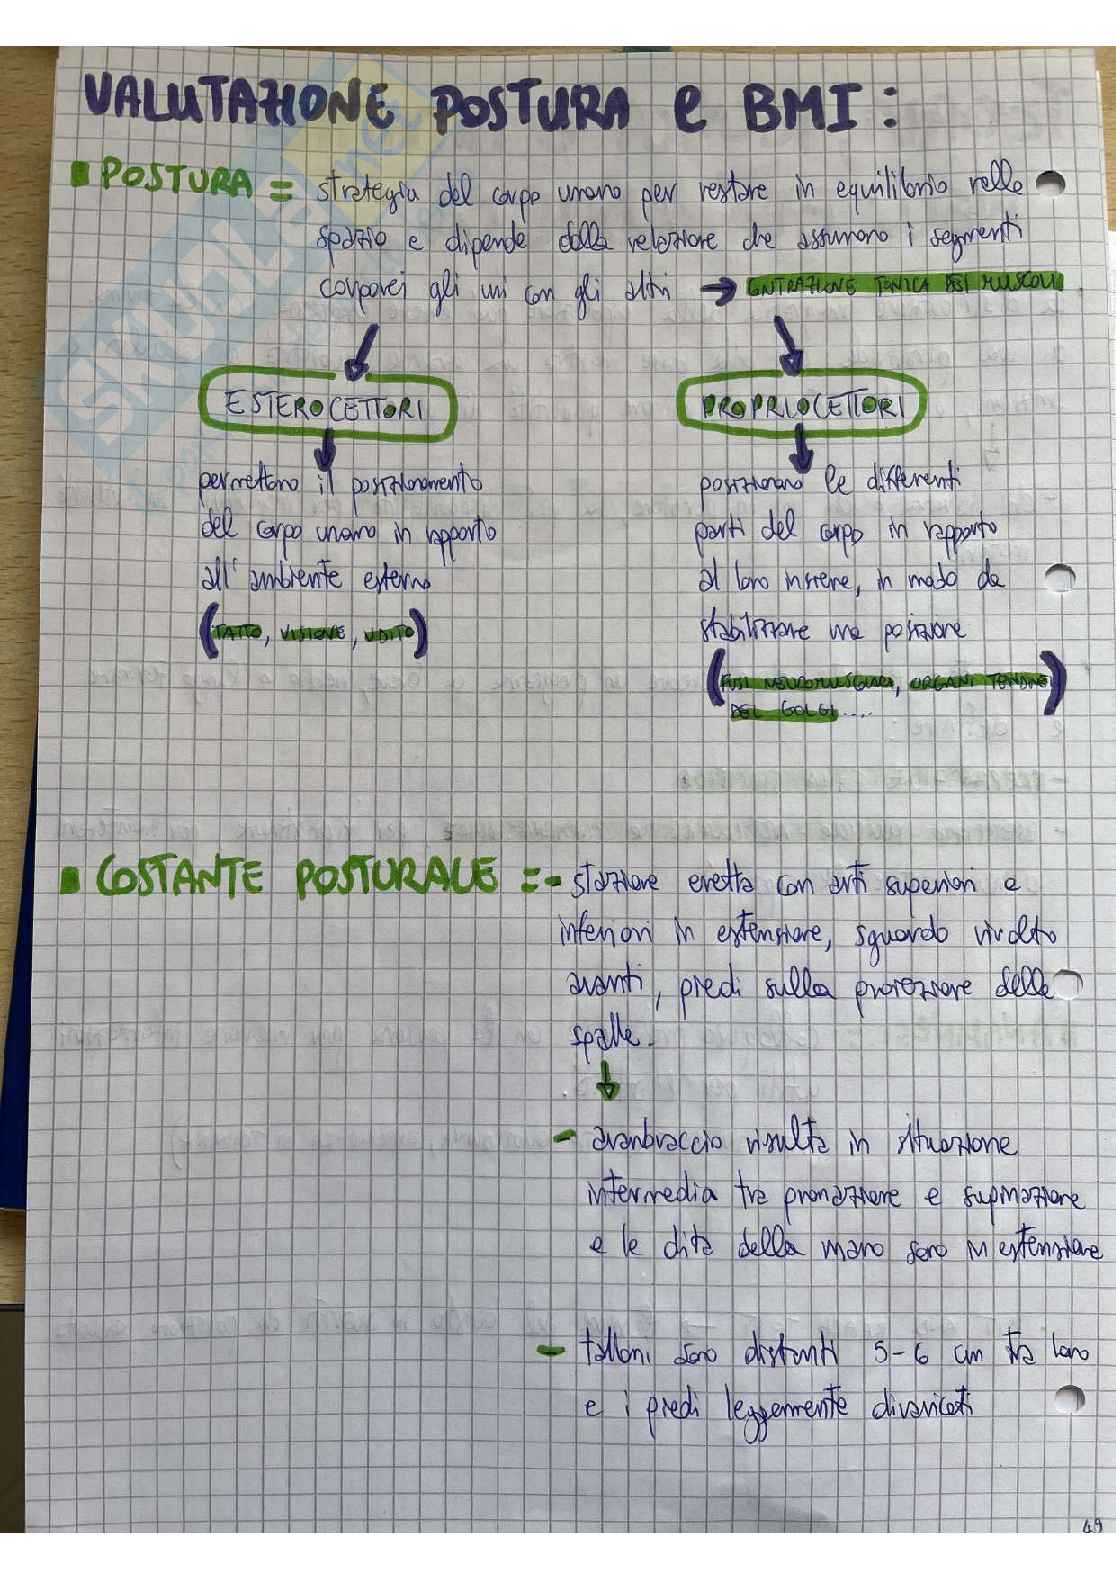 VALUTAZIONE POSTURA e BMI:
POSTURA = strategia del corpo umano per restare in equilibrio nello
spazio e dipende dalla relazione che assumono i segmenti
corporei gli uni con gli altri → CONTRAZIONE TONICA DEI MUSCOLI
ESTEROCETTORI
permettono il posizionamento
del corpo umano in rapporto
all'ambiente esterno
(TATTO, VISIONE, UDITO)
PROPRIOCETTORI
posizionano le differenti
parti del corpo in rapporto
al loro insieme, in modo da
stabilizzare una posizione
(FUSI NEUROMUSCOLARI, ORGANI TENDINEI
DEL GOLGI....
COSTANTE POSTURALE = - stazione eretta con arti superiori e
inferiori in estensione, sguardo rivolto
avanti, piedi sulla proiezione delle
spalle.
- avambraccio risulta in situazione
intermedia tra pronazione e supinazione
e le dita della mano sono in estensione
- talloni sono distanti 5-6 cm tra loro
e i piedi leggermente divaricati
49